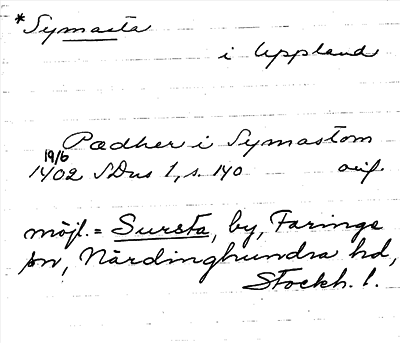 *Symasta
i Uppland
Pædher i Symastom
19/6
1402 SDns 1, s. 140 oeif.
möjl. = Sursta, by, Faringe
sn, Närdinghundra hd,
Stockh. l.